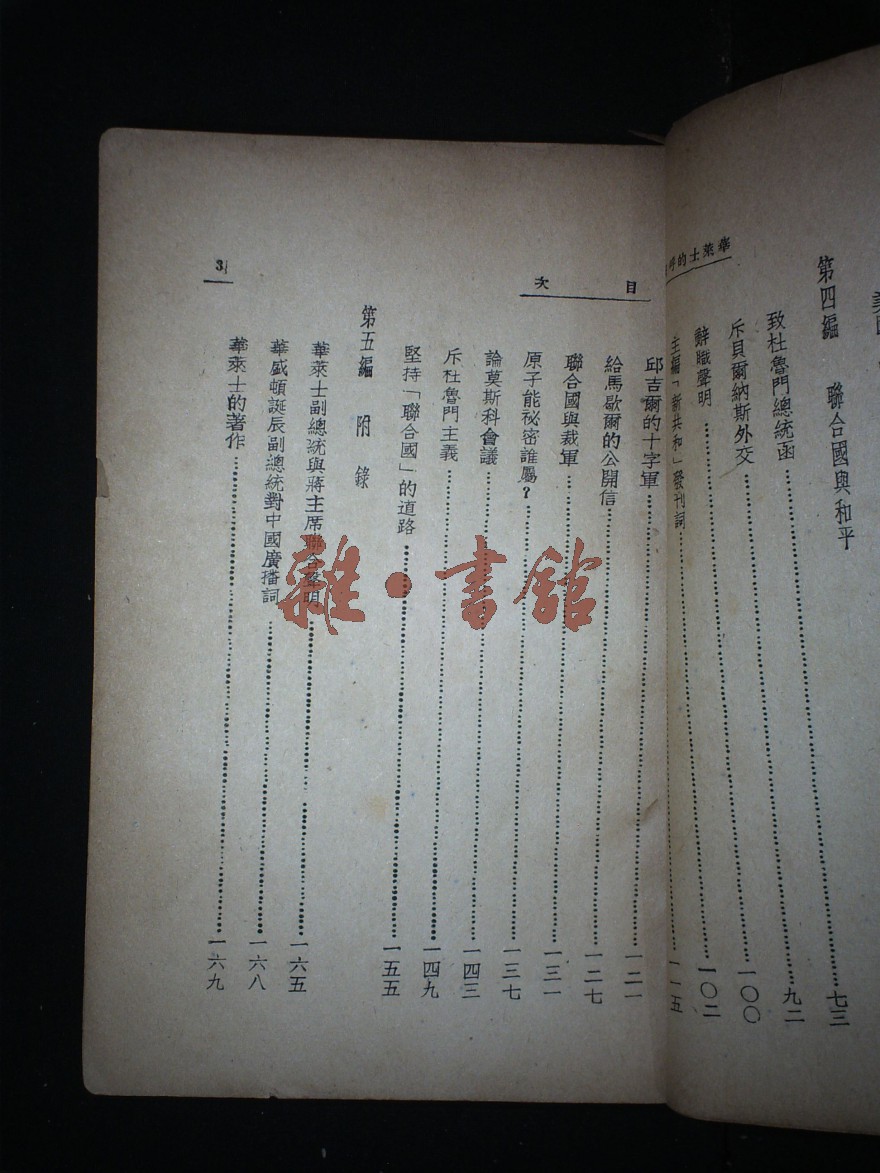 華萊士的呼
七三
第四編 聯合國與和平
致杜魯門總統函……九二
斥貝爾納斯外交……一〇〇
辭職聲明……一〇二
主編「新共和」發刊詞……一一五
目次
邱吉爾的十字軍……一二一
給馬歇爾的公開信……一二七
聯合國與裁軍……一三一
原子能祕密誰屬?……一三七
論莫斯科會議……一四三
斥杜魯門主義……一四九
堅持「聯合國」的道路……一五五
第五編 附錄
華萊士副總統與蔣主席聯合聲明……一六五
華盛頓誕辰副總統對中國廣播詞……一六八
華萊士的著作……一六九
3
雜·書館